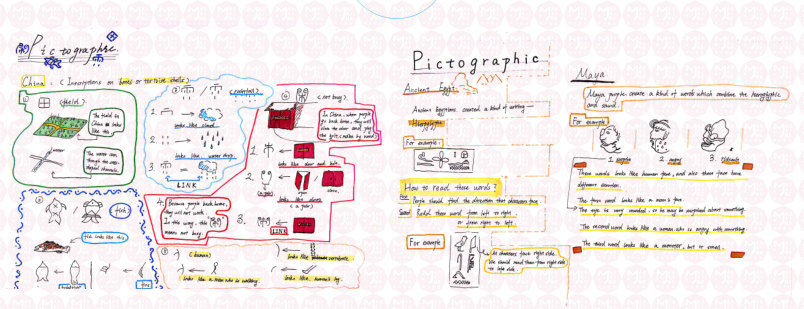 Pictographic.
China: (Inscriptions on bones or tortoise shells)
① 田 (field)
The field in
China is looks
like this.
water
The water can
through the
channels.
② (fish)
fish looks like this
fire
③ (rainfall)
1.
looks like cloud.
2.
looks like water drop.
3.
LINK
④ (not busy)
In China, when people
go back home, they will
close the door and put
the
1.
looks like door and bolt.
2.
open
close
looks like doors
(a gate)
3.
LINK
4. Because people back home,
they will not work.
In this way, this
means not busy.
⑤ (human)
looks like a man who is walking.
looks like vertebrate
looks like human's leg.
Pictographic
Ancient Egypt
Ancient Egyptians created a kind of writing
Hieroglyphic
For example:
How to read these words?
First People should find the direction that characters face.
Second Read these word from left to right
or from right to left.
For example
As characters face right side.
We should read them from right side
to left side.
Maya
Maya people create a kind of words which combine the hieroglyphic
and sound.
For example:
1. surprise
2. angry
3.
These words looks like human face, and also these face have
different emotion.
The first word looks like a man's face.
The eye is very rounded, so he may be surprised about something.
The second word looks like a woman who is angry with something.
The third word looks like a monster, but it smiles.